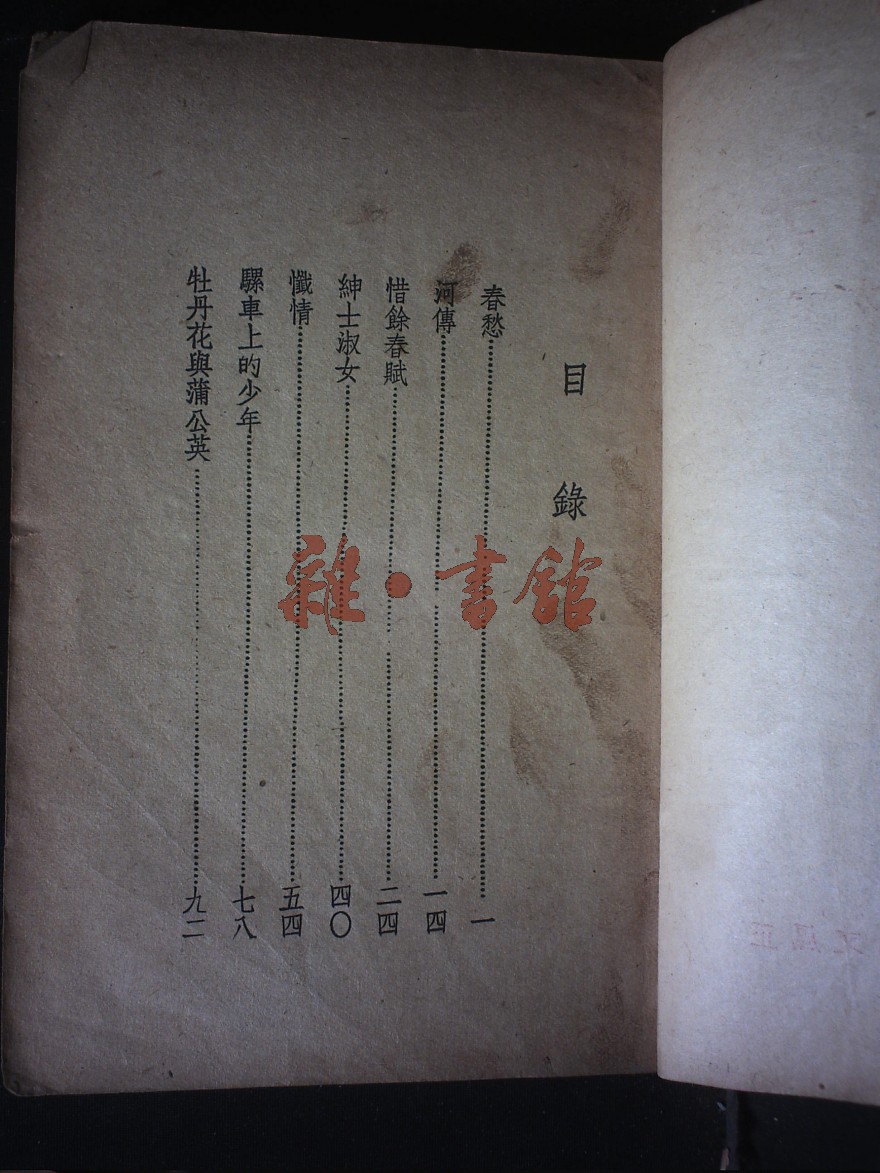 目錄
春愁……一
河傳……一四
惜餘春賦……二四
紳士淑女……四〇
懺情……五四
騾車上的少年……七八
牡丹花與蒲公英……九二
雜·書館